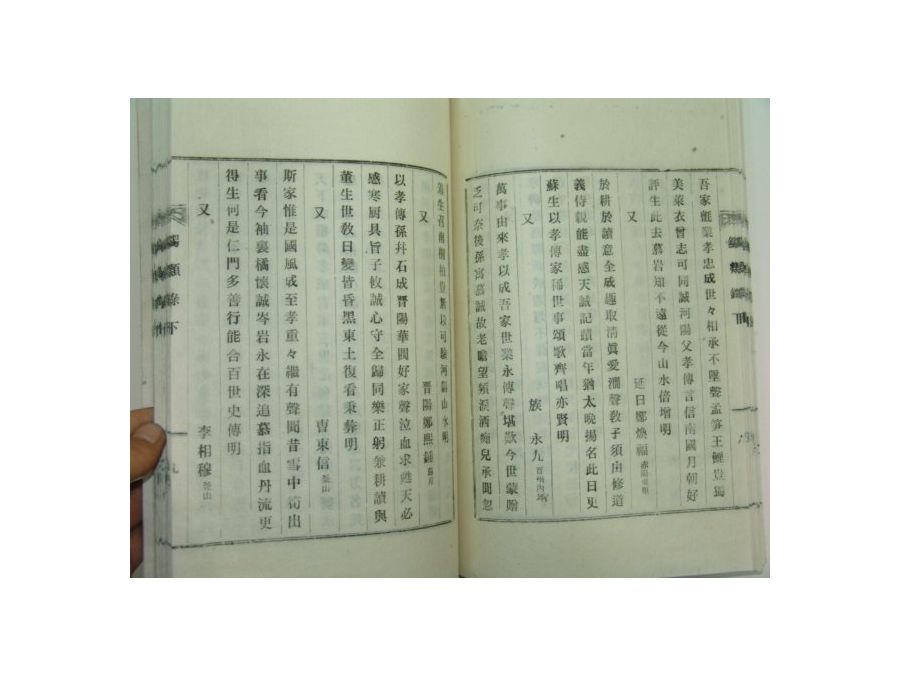 吾家氈業孝忠成世々相承不墜聲孟筍王鯉豈獨
美萊衣曾志可同誠河陽父孝傳言信南國月朝好
評生此去慕岩知不遠從今山水倍增明
又 延日鄭煥福
於耕於讀意全成趣取清眞愛瀰聲敎子須由修道
義侍親能盡感天誠記蹟當年猶太晩揚名此日更
蘇生以孝傳家稀世事頌歌齊唱亦賢明
又 族永九
萬事由來孝以成吾家世業永傳聲堪歎今世蒙贈
乏可奈後孫寓慕誠故老瞻望頻淚洒痴兒承聞忽
山水明
又 晋陽鄭熙鍾
以孝傳孫幷石成晋陽華閥好家聲泣血求甦天必
感寒厨具旨子攸誠心守全歸同樂正躬兼耕讀與
董生世敎日變皆昏黑東土復看秉彛明
又 曺東信
斯家惟是國風成至孝重々繼有聲聞昔雪中荀出
事看今袖裏橘懷誠岑岩永在深追慕指血丹流更
得生何是仁門多善行能合百世史傳明
又 李相穆
類錄下
九